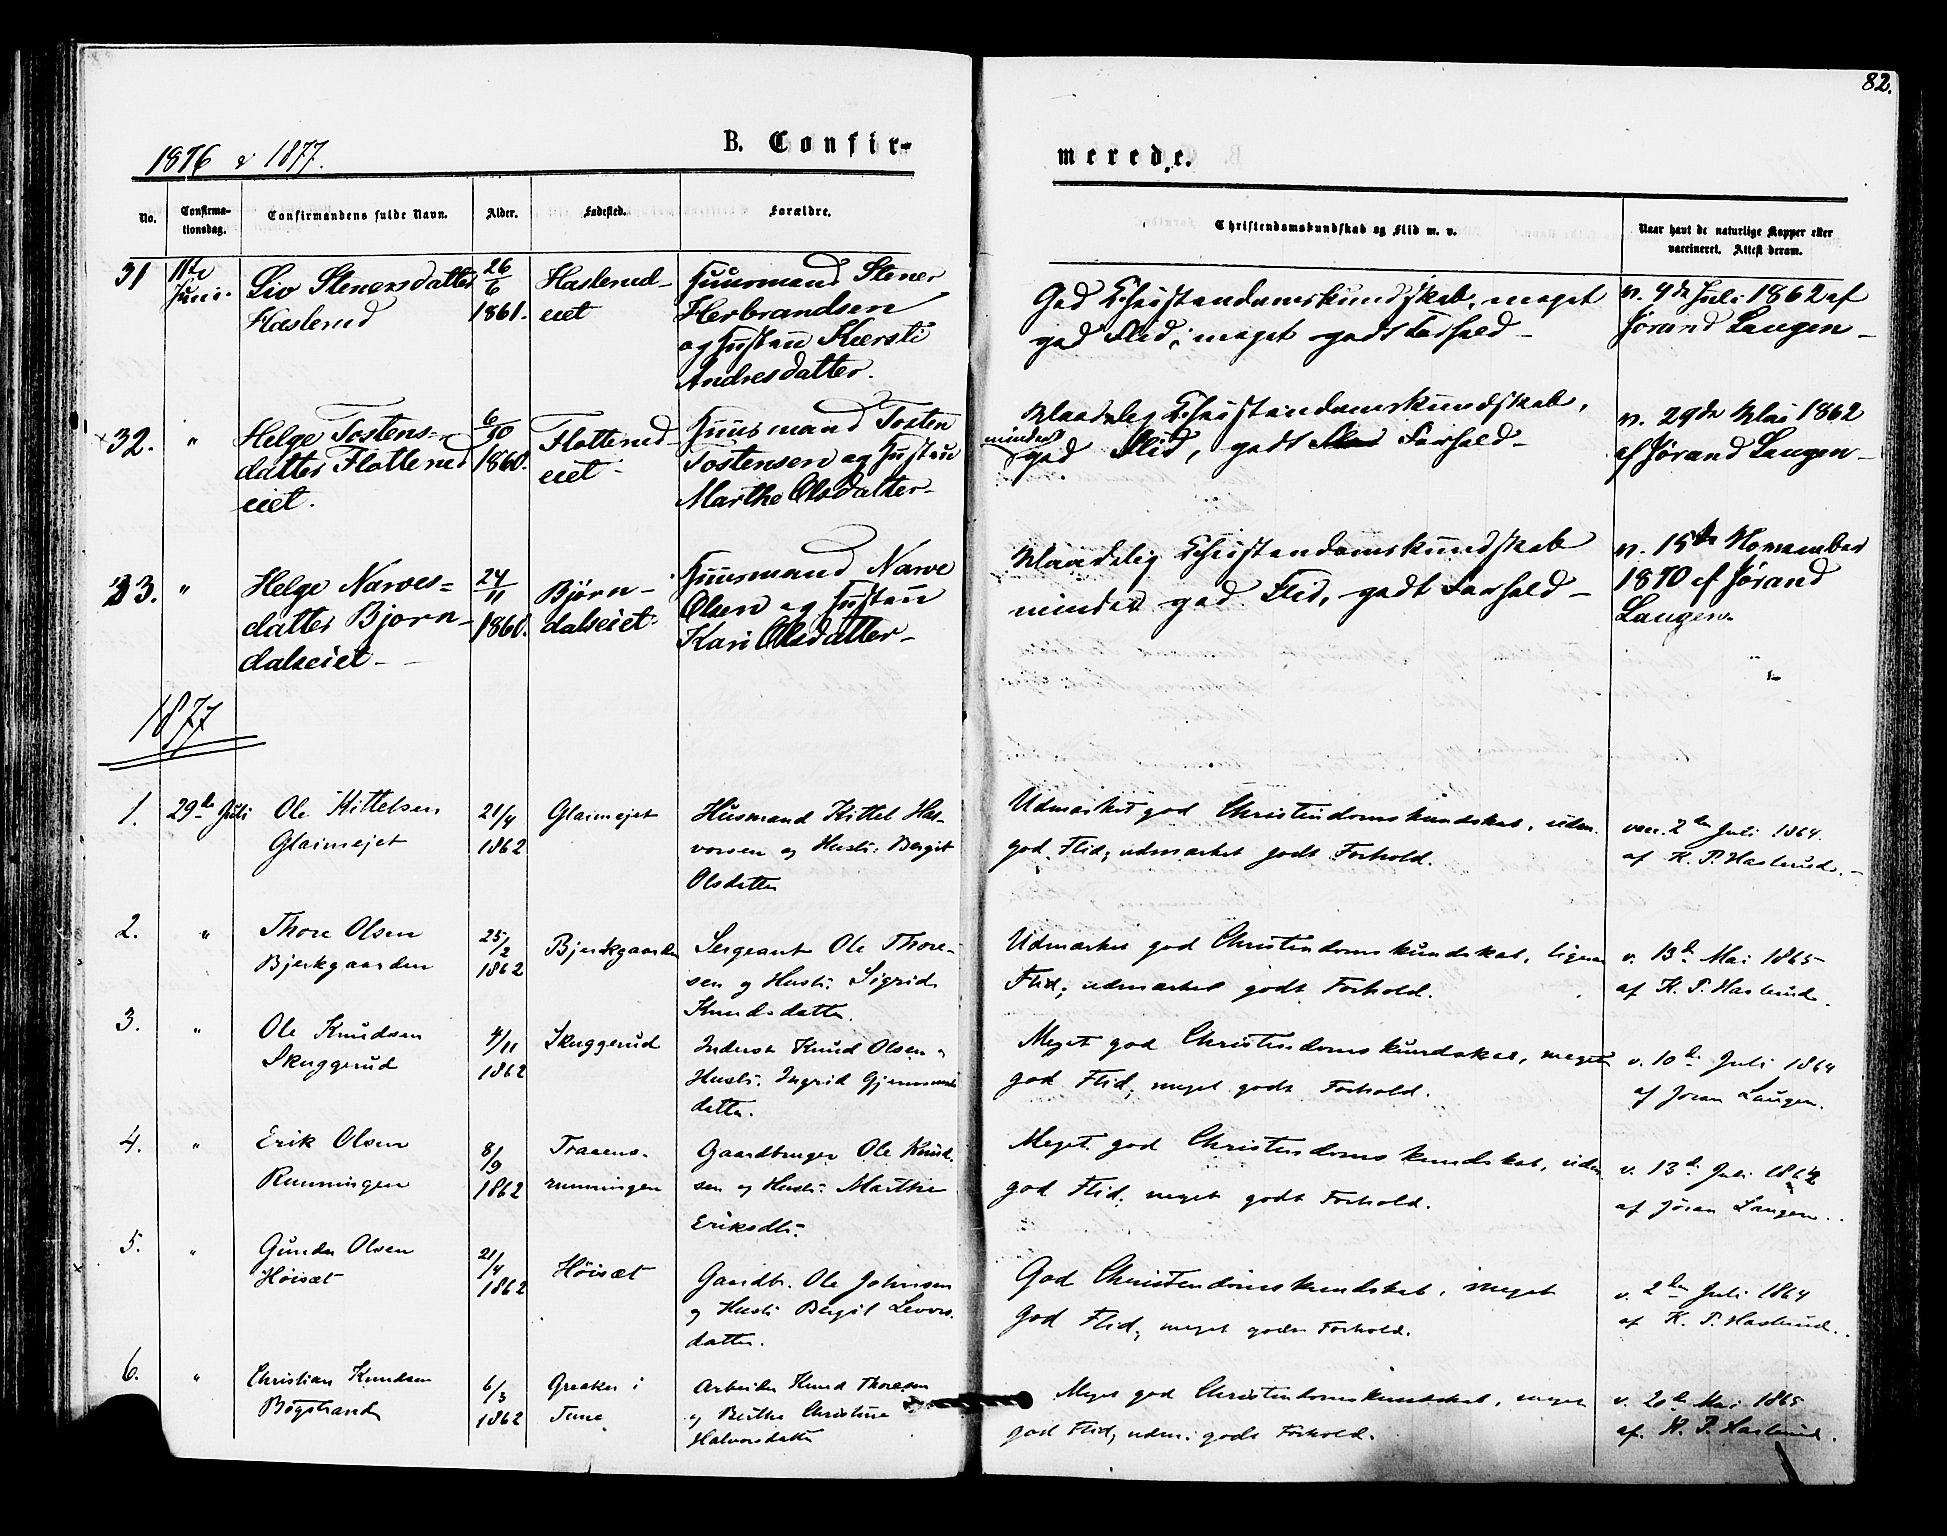 82.
1876 & 1877.
B. Confir-
merede.
No.
Confirma-
tionsdag.
Confirmandens fulde Navn.
Alder.
Fødested.
Forældre.
Christendomskundskab og Flid m. v.
Naar havt de naturlige Kopper eller
vaccineret. Attest derom.
31 11te Juni. Liv Stenersdatter 26/6 1861. Haslerud-
Haslerud eiet
Huusmand Stener
Herbrandsen
og Hustru Kjersti
Andresdatter.
God Christendomskundskab, meget
god Flid, meget godt Forhold-
v. 9de Juli 1862 af
Jørand Laugen-
32. " Helge Tostens- 6/10 1860. Flotterud-
datter Flotterud eiet-
eiet.
Huusmand Tosten
Tostensen og Hustru
Marthe Olsdatter-
Maadelig Christendomskundskab,
mindre
god Flid, godt Forhold-
v. 29de Mai 1862
af Jørand Laugen-
33. " Helge Narves- 24/11 1860. Bjørn-
datter Bjørn- dalseiet-
dalseiet-
Huusmand Narve
Olsen og Hustru
Kari Olsdatter-
Maadelig Christendomskundskab
mindre god Flid, godt Forhold-
v. 15de November
1870 af Jørand
Laugen.
1877
1. 29de Juli Ole Kittelsen 21/4 1862 Glaimejet
Glaimejet
Husmand Kittel Hal-
vorsen og Hustr: Bergit
Olsdatter
Udmærket god Christendomskundskab, udm.
god Flid, udmærket godt Forhold.
vac. 2den Juli 1864.
af K. P. Haslerud.-
2. " Thore Olsen 25/2 1862 Bjerkgaarden
Bjerkgaarden
Sergeant Ole Thore-
sen og Hustr: Sigrid
Knudsdatter.
Udmærket god Christendomskundskab, ligesaa
Flid; udmærket godt Forhold.
v. 13de Mai 1865
af K. P. Haslerud.
3. " Ole Knudsen 4/11 1862 Skuggerud
Skuggerud
Inderst Knud Olsen
Hustr: Ingrid Gjermunds
datter.
Meget god Christendomskundskab, meget
god Flid; meget godt Forhold.
v. 10de Juli 1864
af Joran Laugen.
4. " Erik Olsen 8/9 1862 Traaens-
Runningen runningen
Gaardbruger Ole Knud-
sen og Hustr: Marthe
Eriksdtr.
Meget god Christendomskundskab, udm.
god Flid, meget godt Forhold.
v. 13de Juli
af Jöran Laugen..
5. " Gunder Olsen 21/4 1862 Höisæt
Höisæt
Gaardb. Ole Johnsen
og Hustr: Bergit Levors-
datter.
God Christendomskundskab, meget
god Flid; meget godt Forhold.
v. 2den Juli 1864
af K. P. Haslerud..
6. " Christian Knudsen 6/3 1862 Greaker i
Bögstrand Tune
Arbeider Knud Thoresen
og Berthe Christine
Halvorsdatter
Meget god Christendomskundskab, meget
god Flid; udm. godt Forhold.
v. 20de Mai 1865
af K. P. Haslerud.